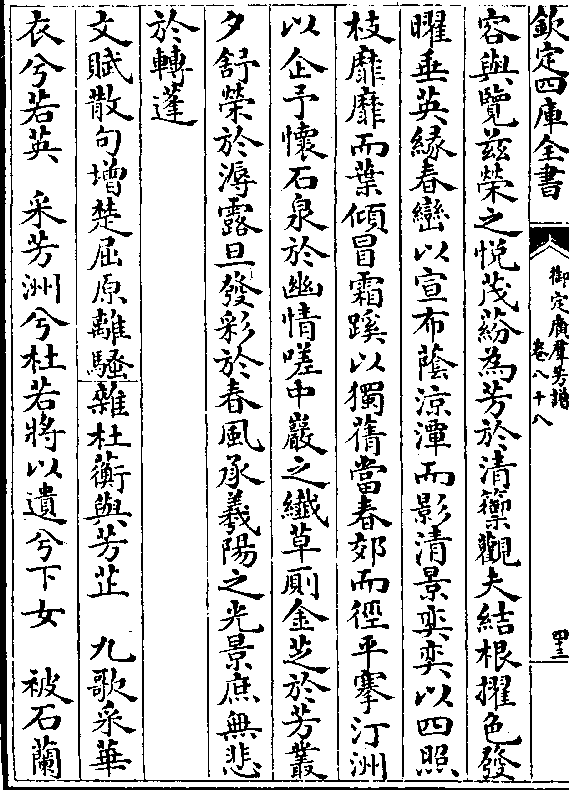 欽定四庫全書
御定廣羣芳譜
卷八十八
四十三
容與覽茲榮之悅茂蒶為芳於清籞觀夫結根擢色發
曜垂英緣春巒以宣布蔭涼潭而影清景奕奕以四照
枝靡靡而葉傾冒霜蹊以獨蒨當春郊而徑平搴汀洲
以企予懷石泉於幽情嗟中巖之纖草厠金芝於芳叢
夕舒榮於溽露旦發彩於春風承羲陽之光景庶無悲
於轉蓬
文賦散句增楚屈原離騷雜杜蘅與芳芷　九歌采華
衣兮若英　采芳洲兮杜若將以遺兮下女　被石蘭